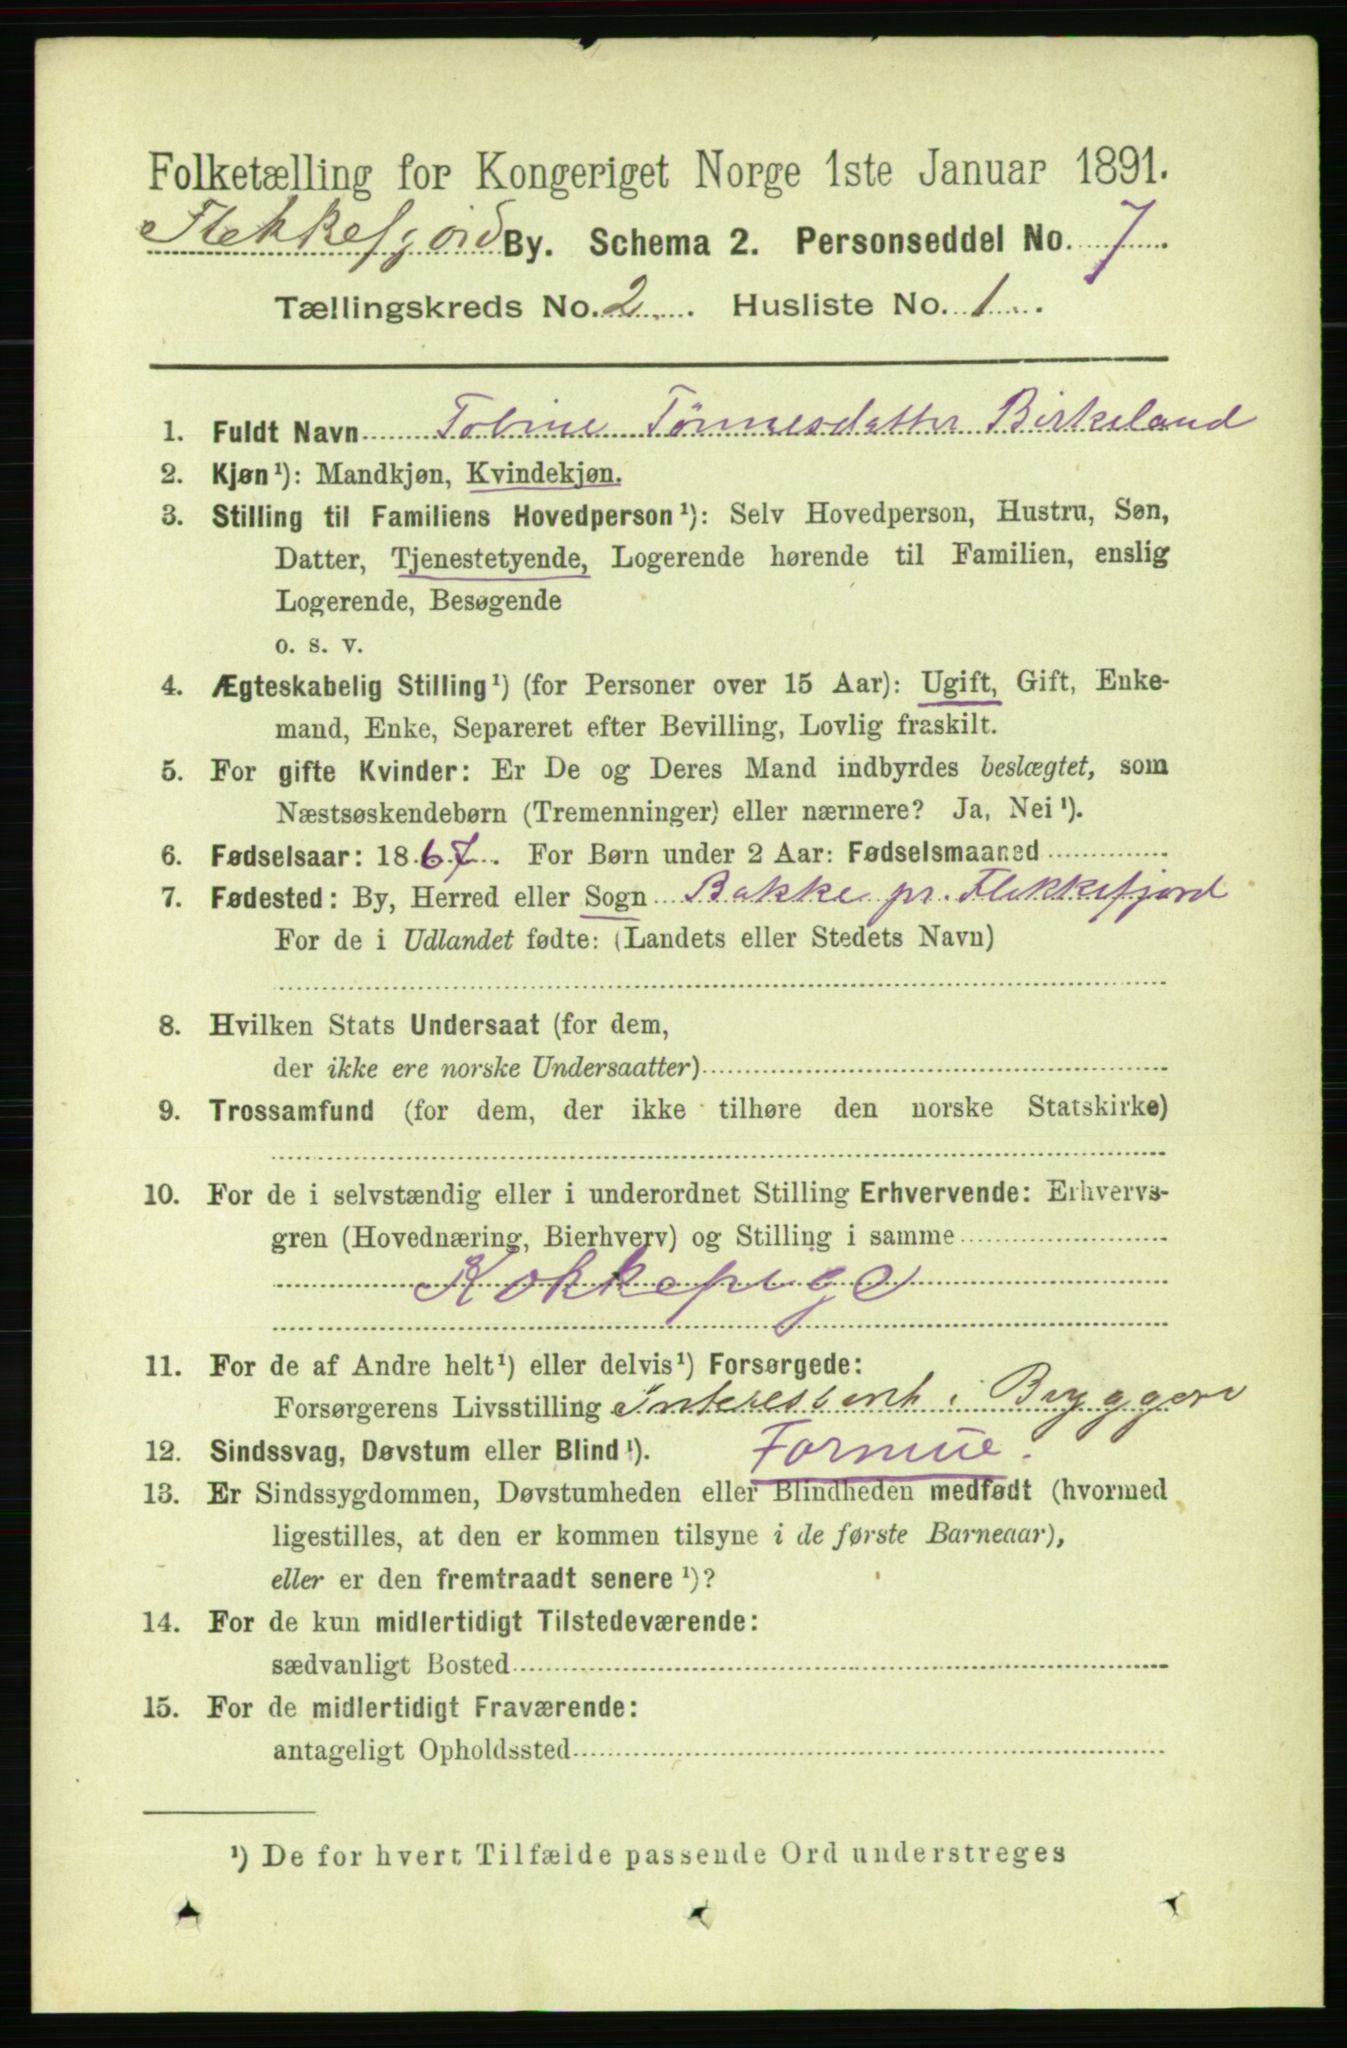 Folketælling for Kongeriget Norge 1ste Januar 1891.
Flekkefjord By. Schema 2. Personseddel No. 7
Tællingskreds No. 2 Husliste No. 1
1. Fuldt Navn Tobine Tönnesdatter Birkeland
2. Kjøn¹): Mandkjøn, Kvindekjøn.
3. Stilling til Familiens Hovedperson¹): Selv Hovedperson, Hustru, Søn,
Datter, Tjenestetyende, Logerende hørende til Familien, enslig
Logerende, Besøgende
o. s. v.
4. Ægteskabelig Stilling¹) (for Personer over 15 Aar): Ugift, Gift, Enke-
mand, Enke, Separeret efter Bevilling, Lovlig fraskilt.
5. For gifte Kvinder: Er De og Deres Mand indbyrdes beslægtet, som
Næstsøskendebørn (Tremenninger) eller nærmere? Ja, Nei¹).
6. Fødselsaar: 1867. For Børn under 2 Aar: Fødselsmaaned
7. Fødested: By, Herred eller Sogn Bakke pr. Flekkefjord
For de i Udlandet fødte: (Landets eller Stedets Navn)
8. Hvilken Stats Undersaat (for dem,
der ikke ere norske Undersaatter)
9. Trossamfund (for dem, der ikke tilhøre den norske Statskirke)
10. For de i selvstændig eller i underordnet Stilling Erhvervende: Erhvervs-
gren (Hovednæring, Bierhverv) og Stilling i samme
Kokkepige
11. For de af Andre helt¹) eller delvis¹) Forsørgede:
Forsørgerens Livsstilling Interessent i Bryggeri
12. Sindssvag, Døvstum eller Blind¹). Formue.
13. Er Sindssygdommen, Døvstumheden eller Blindheden medfødt (hvormed
ligestilles, at den er kommen tilsyne i de første Barneaar),
eller er den fremtraadt senere¹)?
14. For de kun midlertidigt Tilstedeværende:
sædvanligt Bosted
15. For de midlertidigt Fraværende:
antageligt Opholdssted
¹) De for hvert Tilfælde passende Ord understreges